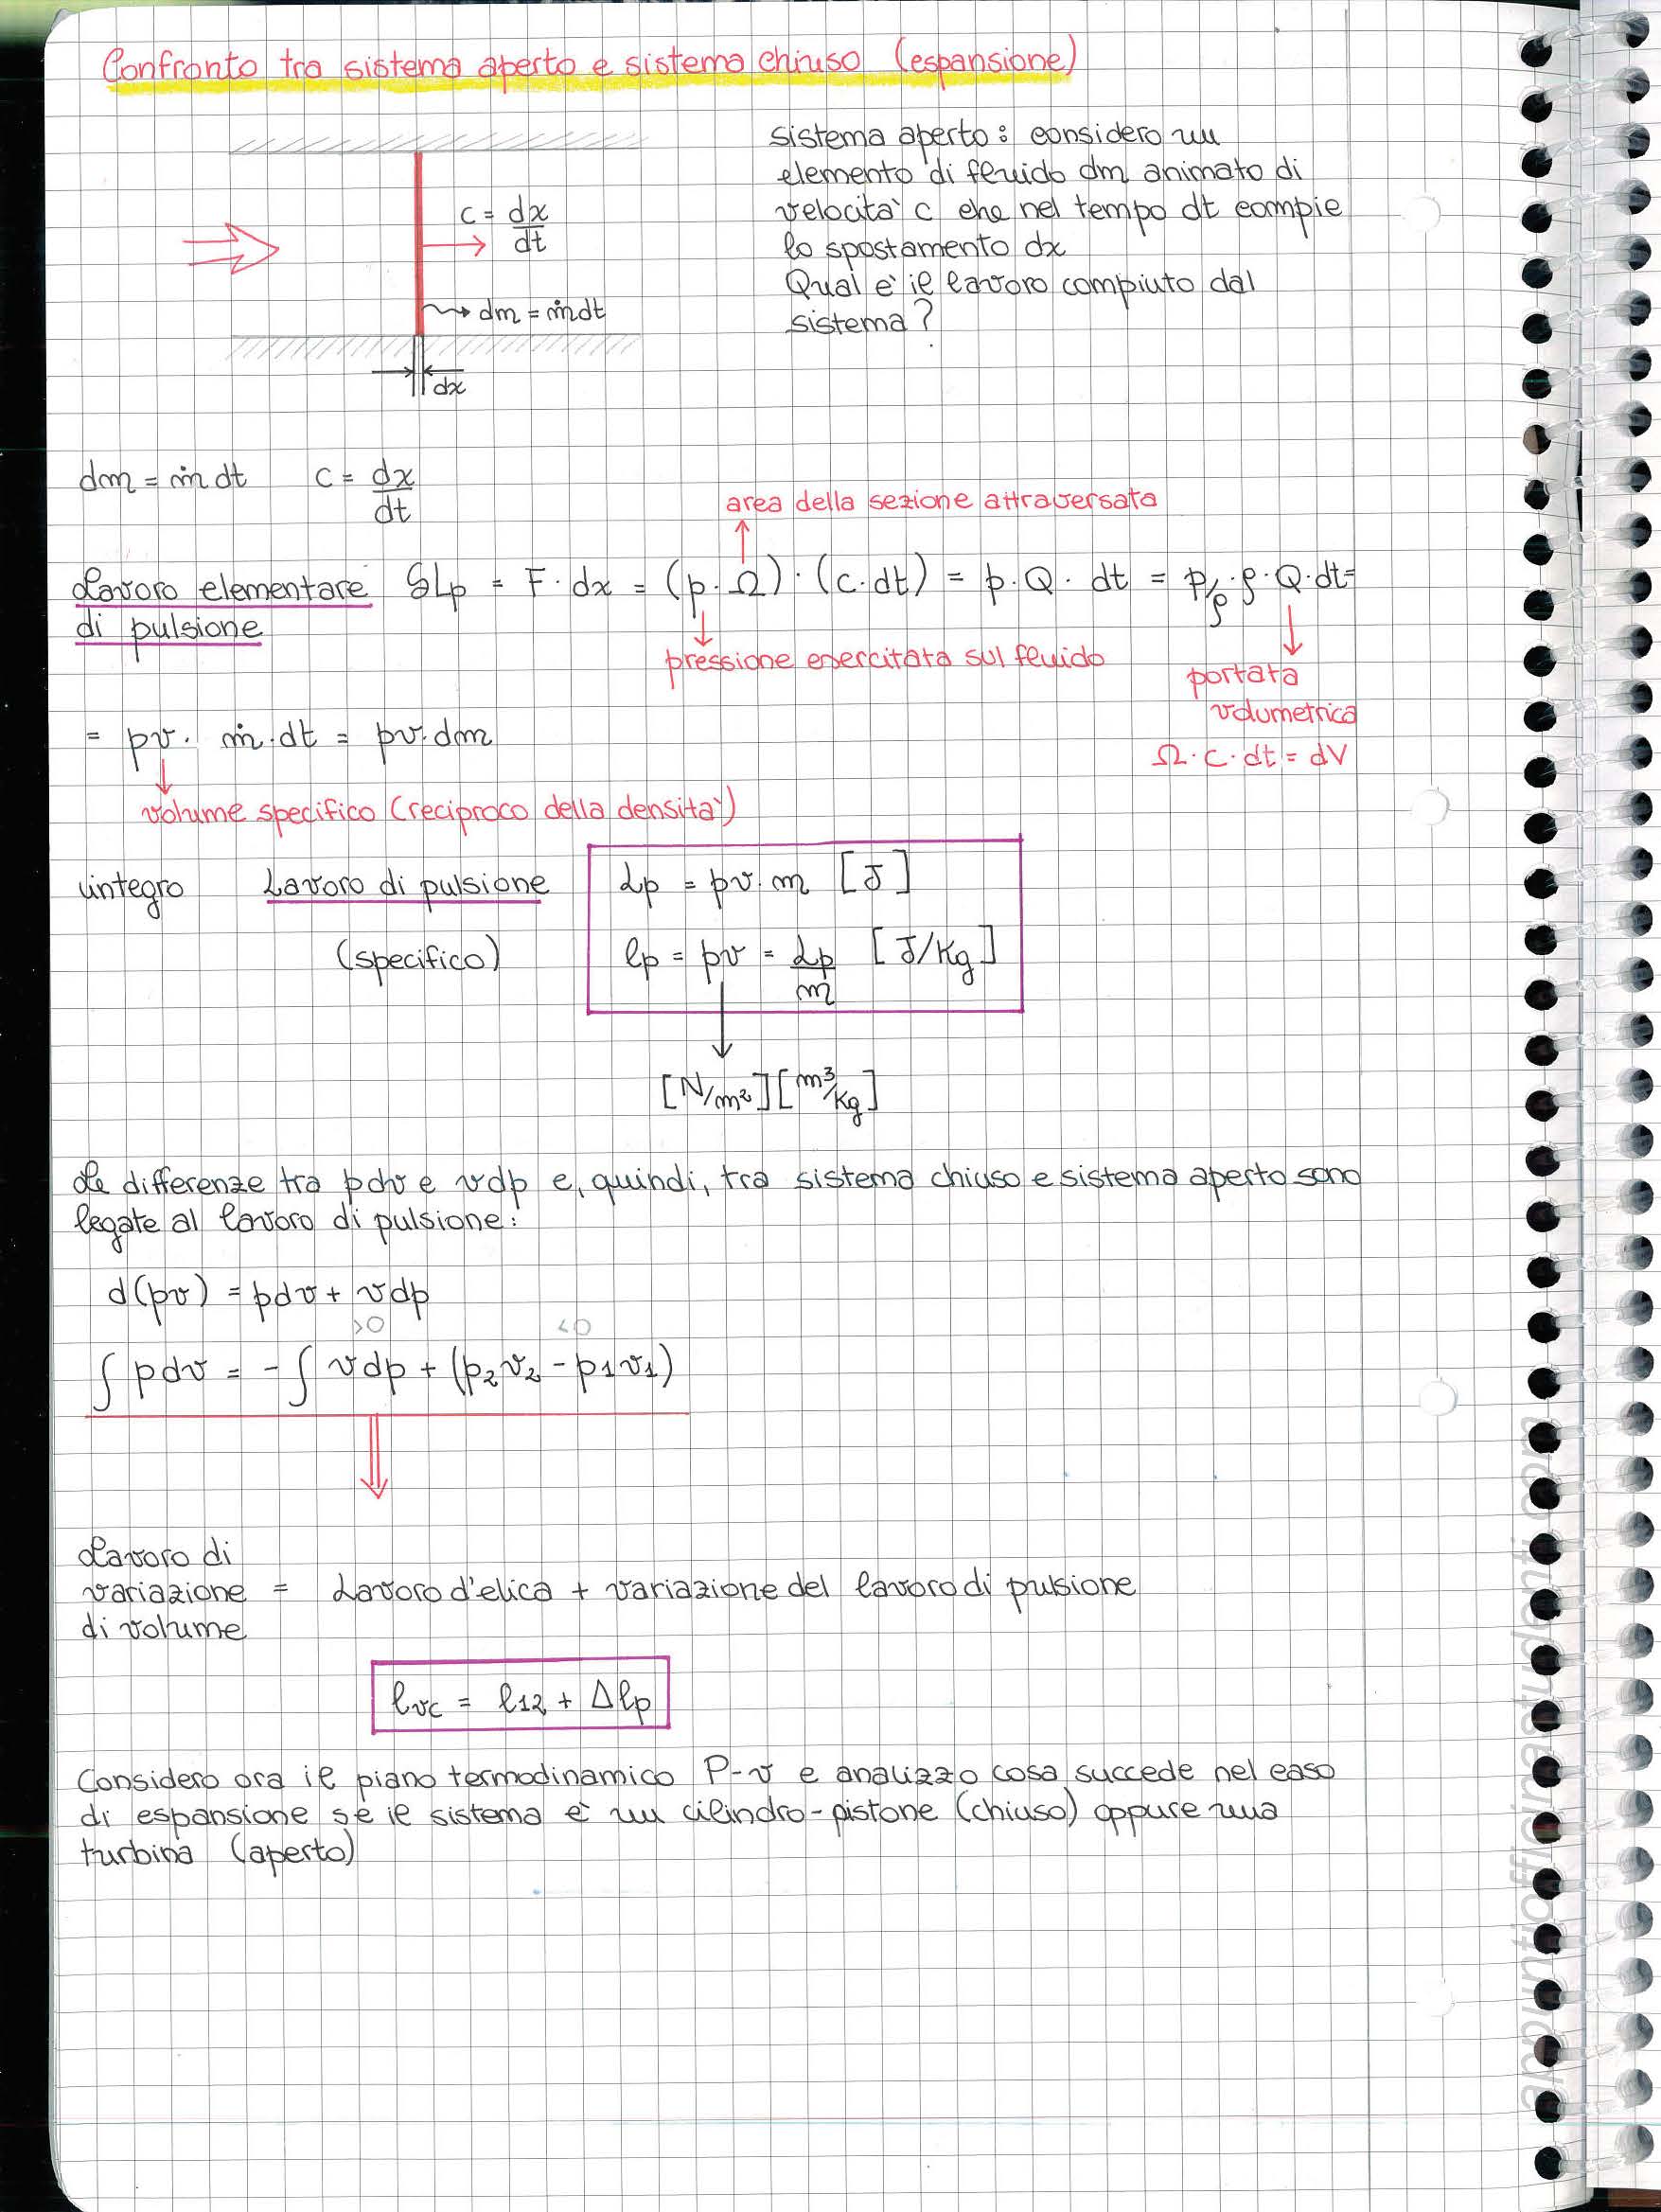 Confronto tra sistema aperto e sistema chiuso (espansione)
sistema aperto: considero un
elemento di fluido dm animato di
velocità c che nel tempo dt compie
lo spostamento dx
Qual è il lavoro compiuto dal
sistema?
c = dx/dt
dm = ṁdt
dx
dm = ṁ dt c = dx/dt
area della sezione attraversata
Lavoro elementare δLp = F · dx = (p · Ω) · (c · dt) = p · Q · dt = p/ρ · ρ · Q · dt =
di pulsione
pressione esercitata sul fluido
portata
volumetrica
Ω · c · dt = dV
= pv · ṁ · dt = pv · dm
volume specifico (reciproco della densità)
integro Lavoro di pulsione Lp = pv · m [J]
(specifico) lp = pv = Lp/m [J/Kg]
[N/m²][m³/Kg]
Le differenze tra pdv e vdp e, quindi, tra sistema chiuso e sistema aperto sono
legate al lavoro di pulsione:
d(pv) = pdv + vdp
>0 <0
∫ pdv = - ∫ vdp + (p₂v₂ - p₁v₁)
Lavoro di
variazione = Lavoro d'elica + variazione del lavoro di pulsione
di volume
lvc = l12 + Δlp
Considero ora il piano termodinamico P-v e analizzo cosa succede nel caso
di espansione se il sistema è un cilindro-pistone (chiuso) oppure una
turbina (aperto)
appuntiofficinastudenti.com